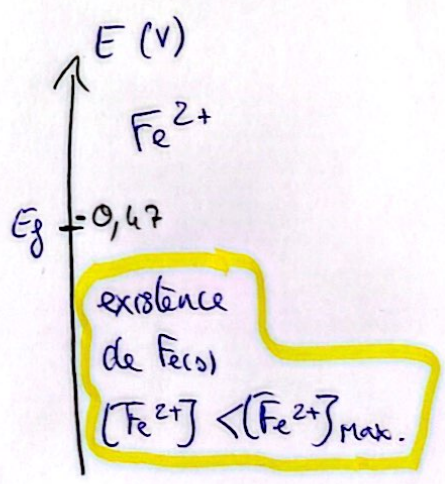 E (V)
Fe²⁺
Ef -0,47
existence
de Fe(s)
[Fe²⁺] <[Fe²⁺]Max.